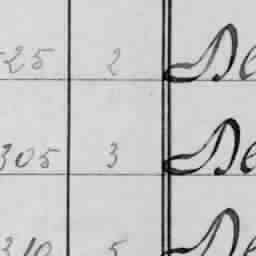 25 2 De
305 3 De
310 5 De